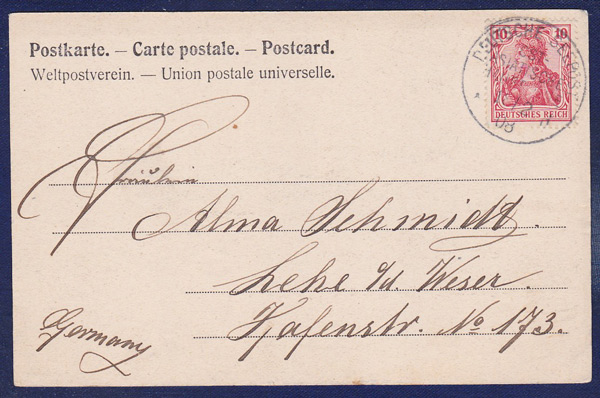 Postkarte. – Carte postale. – Postcard.
Weltpostverein. — Union postale universelle.
10 10
DEUTSCHES REICH
DEUTSCHE SEEPOST
08
Fräulein
Alma Schmidt.
Lehe a/d. Weser.
Hafenstr. No 173.
Germany